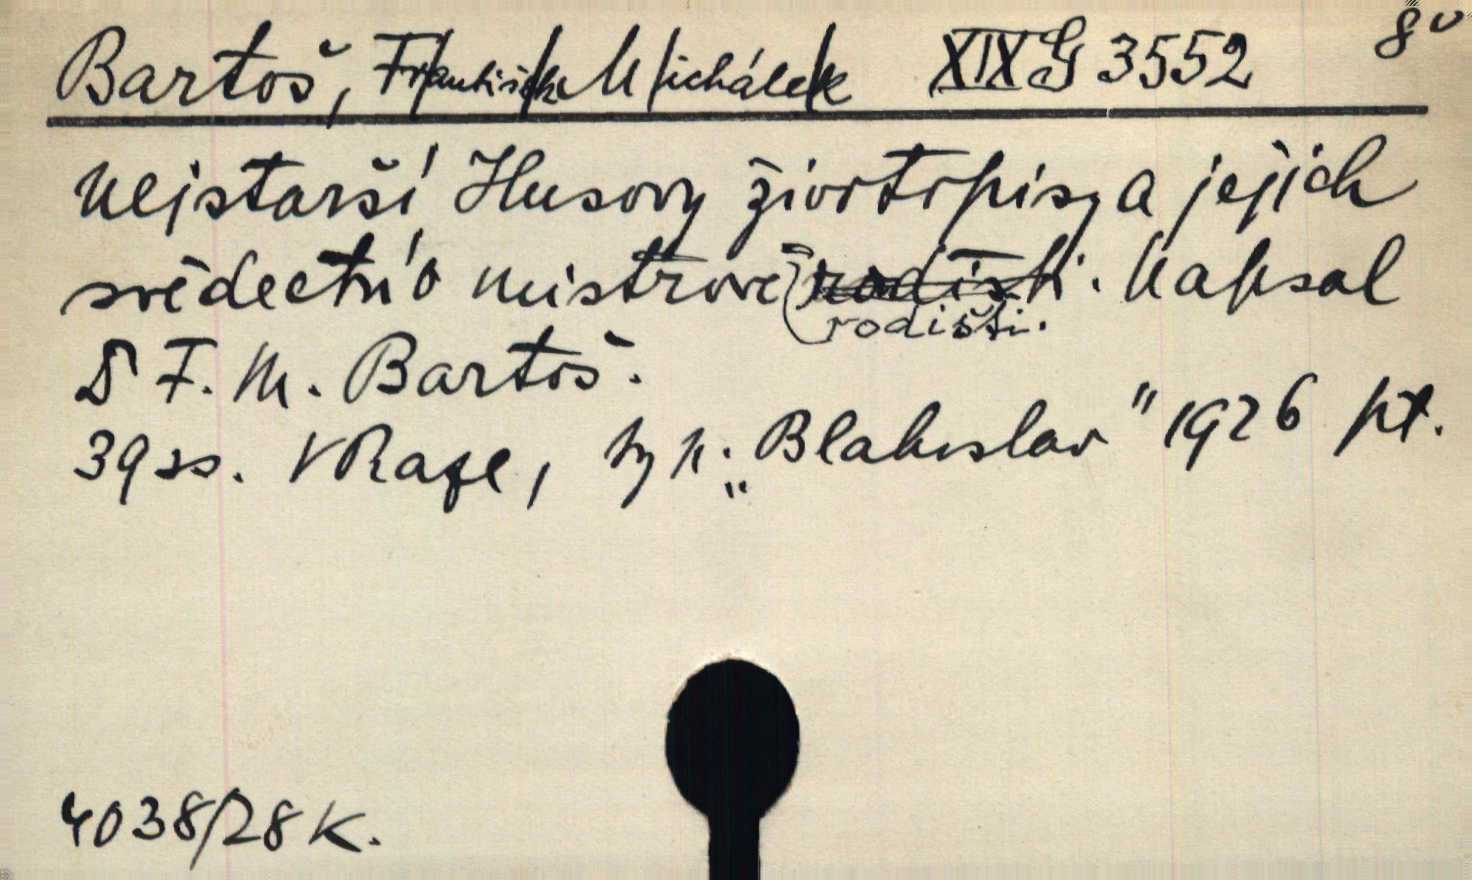 Bartoš, F/rantiše/k M/ichále/k XIX G 3552 8°
Nejstarší Husovy životopisy a jejich
svědectví o mistrově rodišti. Napsal
rodišti.
Dr F. M. Bartoš.
39 ss. V Praze, typ. „Blahoslav" 1926 pt.
4038/28 K.